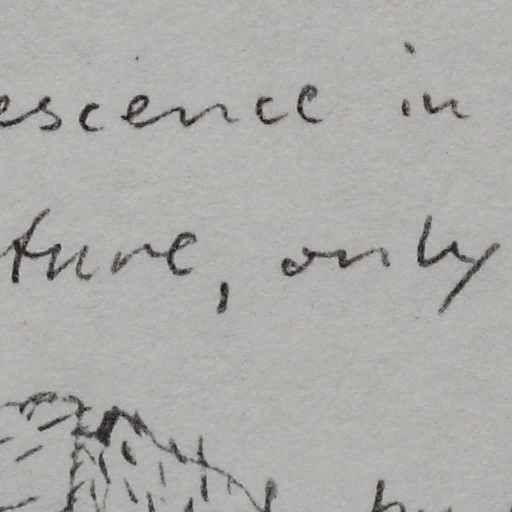 escence in
ture, only